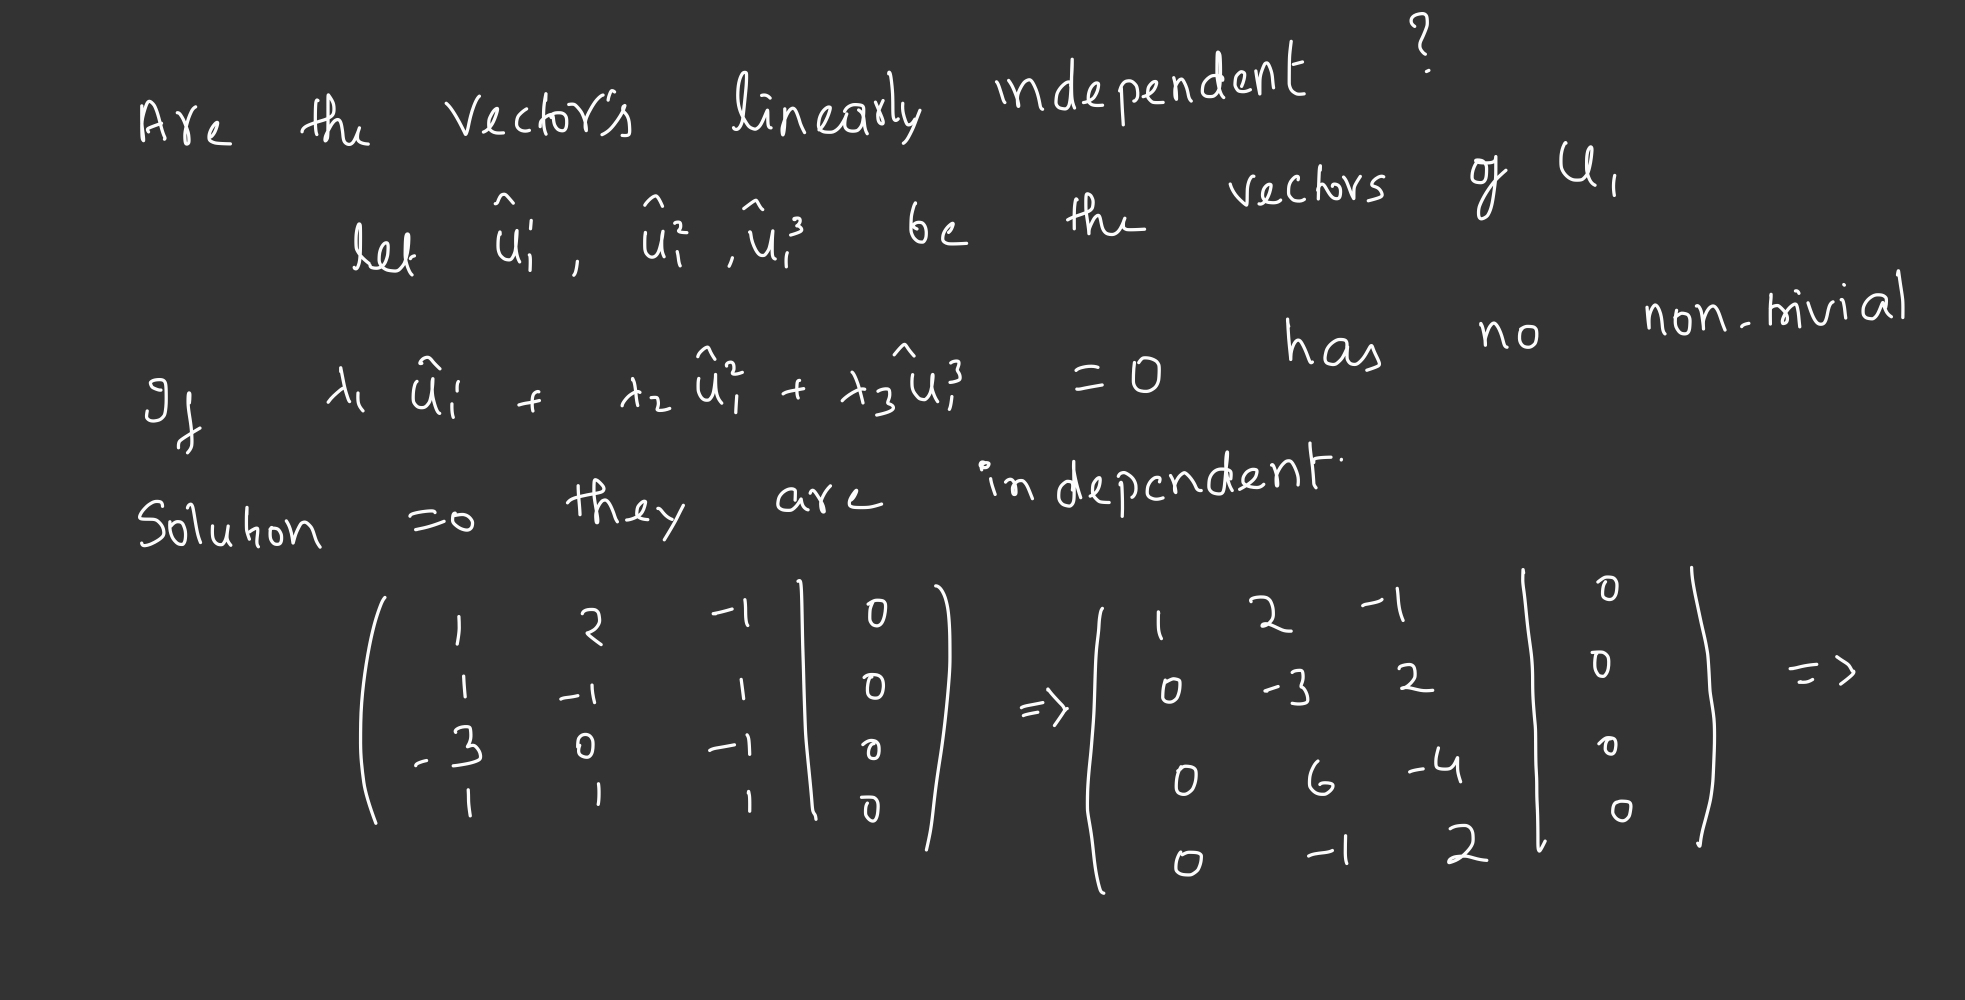 Are the vectors linearly independent ?
let û₁¹, û₁², û₁³ be the vectors of U₁
If λ₁ û₁¹ + λ₂ û₁² + λ₃ û₁³ = 0 has no non-trivial
Solution => they are independent.
( 1 2 -1 | 0 ) => ( 1 2 -1 | 0 ) =>
( 1 -1 1 | 0 ) ( 0 -3 2 | 0 )
( -3 0 -1 | 0 ) ( 0 6 -4 | 0 )
( 1 1 1 | 0 ) ( 0 -1 2 | 0 )